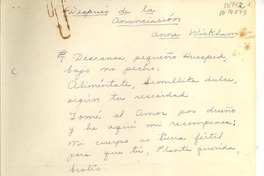 Después de la
Anunciación
Anna Wickham
Descansa, pequeño Huésped,
bajo mi pecho.
Aliméntate, Semillita dulce,
según tu necesidad
Tomé al Amor por dueño
y he aquí mi recompensa;
mi cuerpo es tierra fértil
para que tú, Planta querida,
brotes.